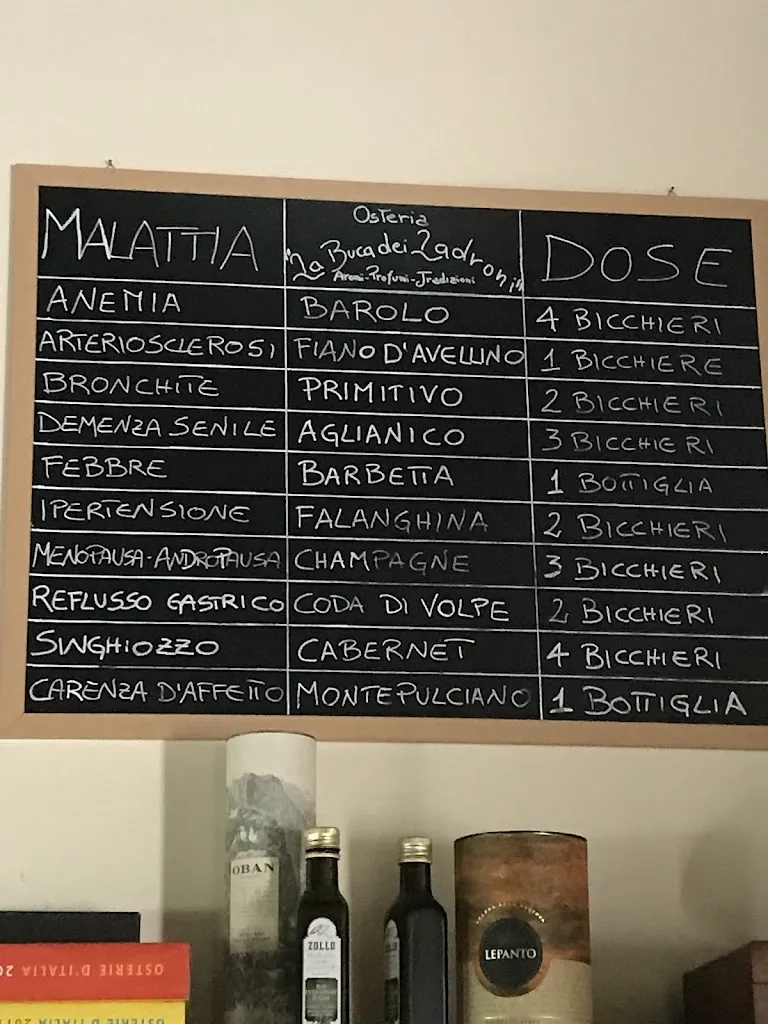 MALATTIA
Osteria
"La Buca dei Ladroni"
Aromi-Profumi-Tradizioni
DOSE
ANEMIA BAROLO 4 BICCHIERI
ARTERIOSCLEROSI FIANO D'AVELLINO 1 BICCHIERE
BRONCHITE PRIMITIVO 2 BICCHIERI
DEMENZA SENILE AGLIANICO 3 BICCHIERI
FEBBRE BARBETTA 1 BOTTIGLIA
IPERTENSIONE FALANGHINA 2 BICCHIERI
MENOPAUSA-ANDROPAUSA CHAMPAGNE 3 BICCHIERI
REFLUSSO GASTRICO CODA DI VOLPE 2 BICCHIERI
SINGHIOZZO CABERNET 4 BICCHIERI
CARENZA D'AFFETTO MONTEPULCIANO 1 BOTTIGLIA
OBAN
ZOLLO
LEPANTO
OSTERIE D'ITALIA 20
OSTERIE D'ITALIA 201